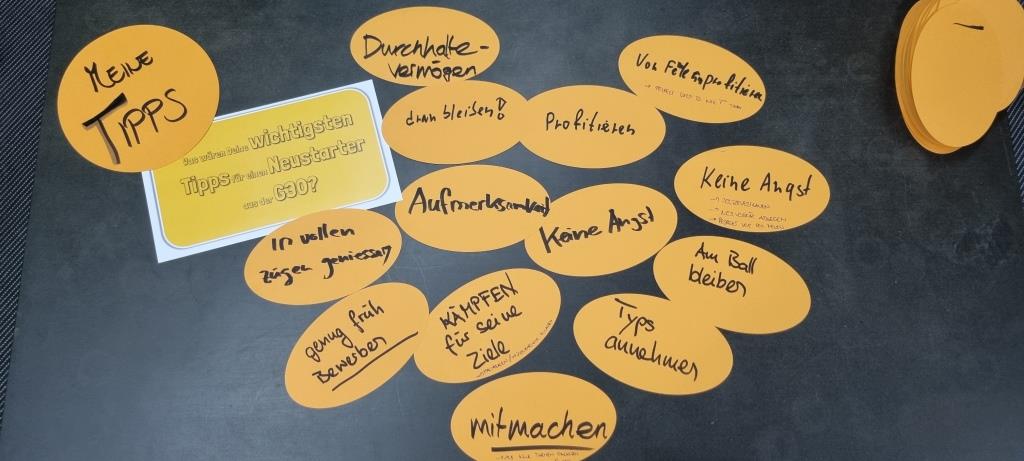 MEINE
TIPPS
Was wären Deine wichtigsten
Tipps für einen Neustarter
aus der G30?
Durchhalte-
vermögen
dran bleiben!
Profitieren
Von Fehlern profitieren
Aufmerksamkeit
Keine Angst
Keine Angst
In vollen
zügen geniessen
Am Ball
bleiben
genug früh
Bewerben
KÄMPFEN
für seine
Ziele
Typs
annehmen
mitmachen